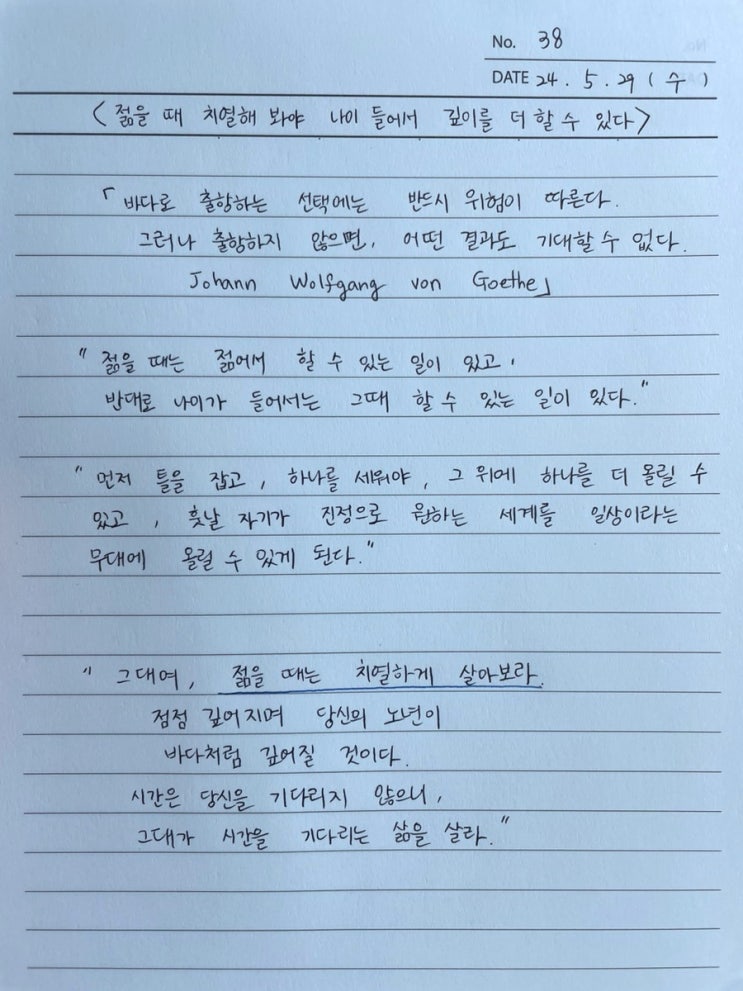 No. 38
DATE 24. 5. 29 ( 수 )
<젊을 때 치열해 봐야 나이 들어서 깊이를 더 할 수 있다>
「바다로 출항하는 선택에는 반드시 위험이 따른다.
그러나 출항하지 않으면, 어떤 결과도 기대할 수 없다.
Johann Wolfgang von Goethe」
"젊을 때는 젊어서 할 수 있는 일이 있고,
반대로 나이가 들어서는 그때 할 수 있는 일이 있다."
"먼저 틀을 잡고, 하나를 세워야, 그 위에 하나를 더 올릴 수
있고, 훗날 자기가 진정으로 원하는 세계를 일상이라는
무대에 올릴 수 있게 된다."
"그대여, 젊을 때는 치열하게 살아보라.
점점 깊어지며 당신의 노년이
바다처럼 깊어질 것이다.
시간은 당신을 기다리지 않으니,
그대가 시간을 기다리는 삶을 살라."